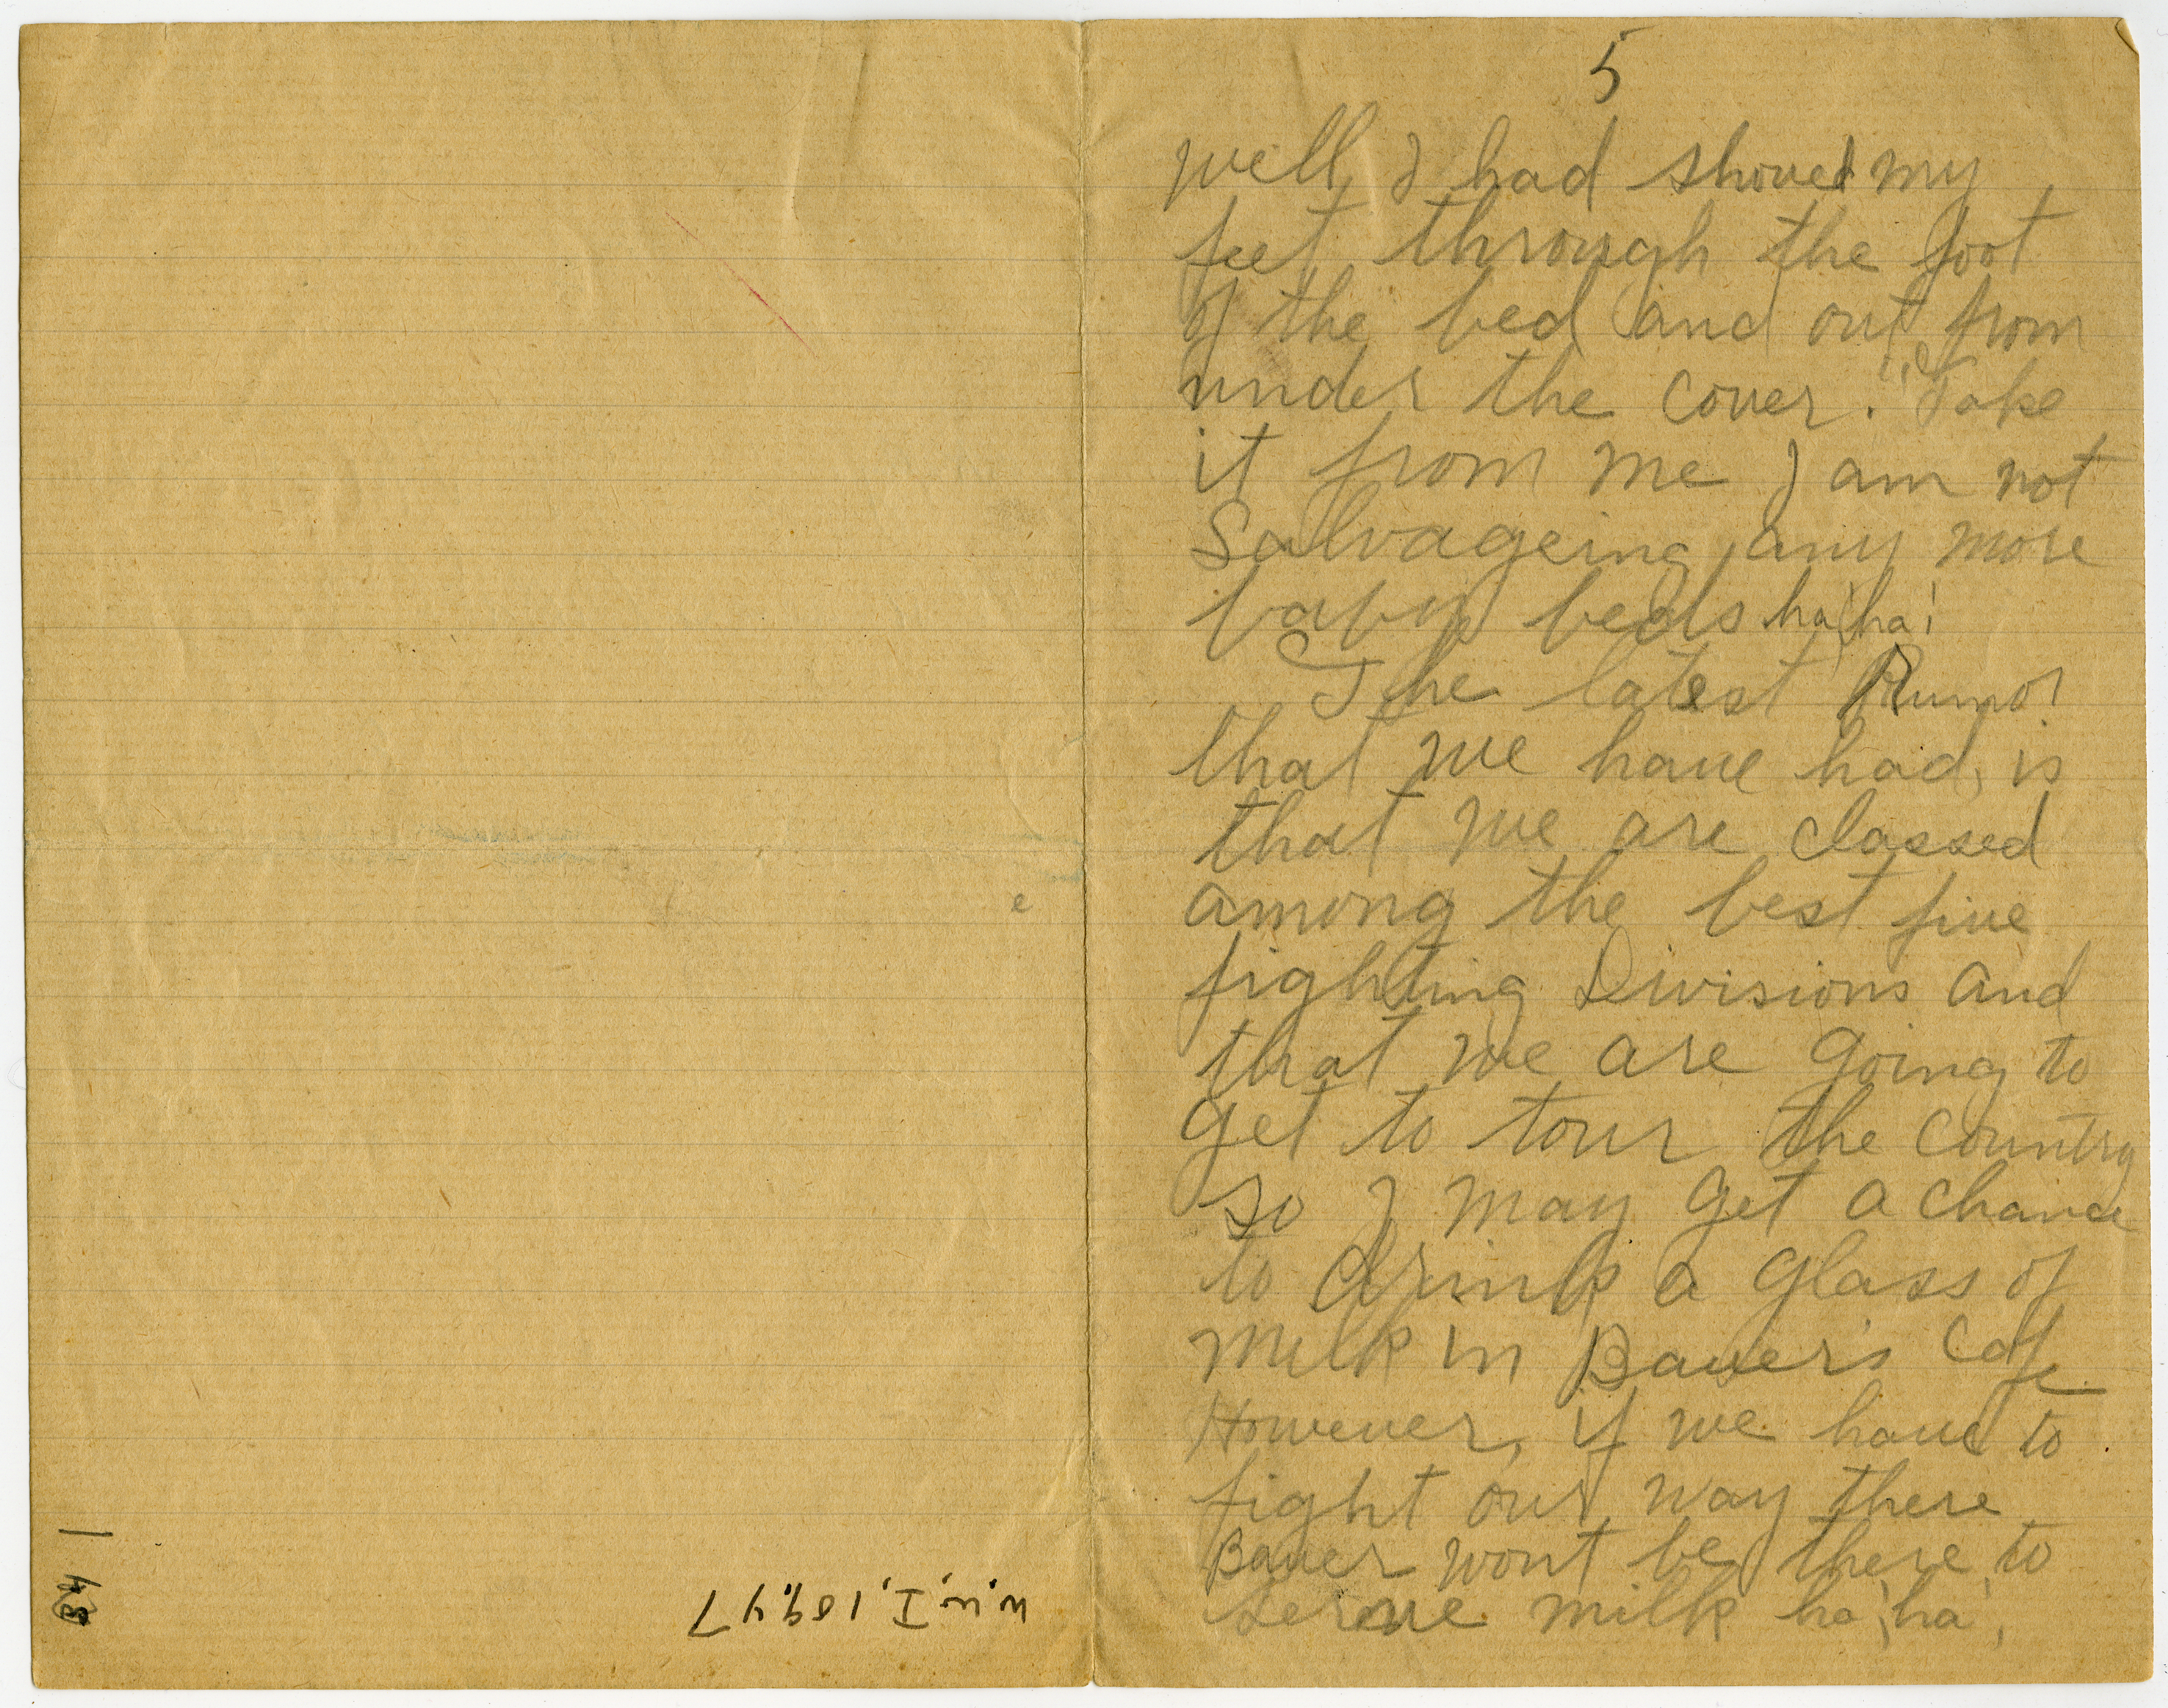 5
well, I had shoved my
feet through the foot
of the bed and out from
under the cover. "Take
it from me I am not
Salvageing any more
baby beds ha! ha!
The latest Rumor
that we have had, is
that we are classed
among the best five
fighting Divisions and
that we are going to
get to tour the country
so I may get a chance
to drink a glass of
milk in Bauer's Cafe
However, if we have to
fight our way there
Bauer wont be there to
serve milk ha! ha!
W.W.I, 109.47